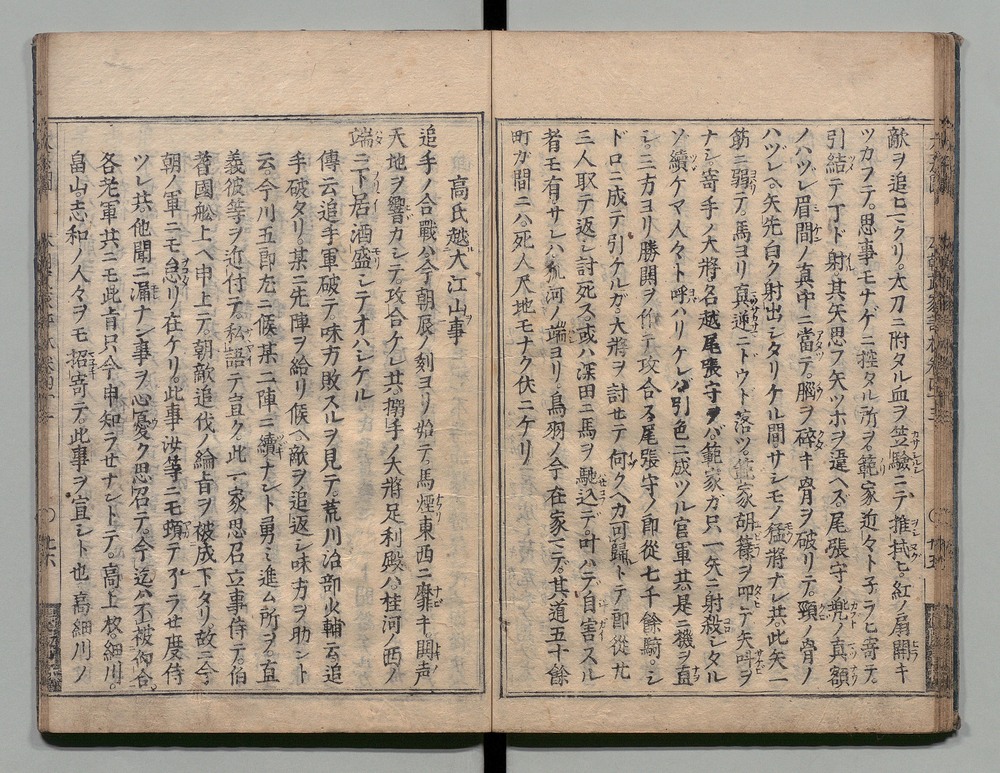 敵ヲ追ヒマクリ。太刀ニ附タル血ヲ笠驗ニテ推拭ヒ。紅ノ扇開キ
ツカフテ。思事モナゲニ控タル所ヲ。範家近々ト子ラヒ寄テ。
引結テ丁ド射。其矢思フ矢ツホヲ違ヘズ。尾張守ノ兜ノ真額
ノハツレ眉間ノ真中ニ當テ。腦ヲ碎キ骨ヲ破リテ。頸ノ骨ノ
ハツレヘ矢先白ク射出シタリケル間。サシモノ猛將ナレ共。此矢一
筋ニ弱テ。馬ヨリ真逆ニドウド落ツ。範家胡簶ヲ叩テ矢叫ヲ
ナシ。寄手ノ大將名越尾張守ヲバ。範家ガ只一矢ニ射殺シタル
ソ。續ケマ人々ト呼ハリケレハ。引色ニ成ツル官軍共。是ニ機ヲ直
シ。三方ヨリ勝鬨ヲ作テ攻合ス。尾張守ノ郎從七千餘騎。シ
ドロニ成テ引ケルガ。大將ヲ討セテ何クヘカ可歸トテ。郎從九
三人取テ返シ討死ス。或ハ深田ニ馬ヲ馳込デ。叶ハデ自害スル
者モ有。サレハ狐河ノ端ヨリ。鳥羽ノ今在家マデ。其道五十餘
町ガ間ニハ。死人尺地モナク伏ニケリ
高氏越大江山事
追手ノ合戰ハ。今朝辰ノ刻ヨリ始テ。馬煙東西ニ靡キ。鬨声
天地ヲ響カシテ。攻合ケレ共。搦手ノ大將足利殿ハ。桂河ノ西ノ
端ニ下居。酒盛シテオハシケル
傳云追手軍破テ味方敗スルヲ見テ。荒川治部少輔云追
手破タリ。某ニ先陣ヲ給リ候ヘ。敵ヲ追返シ味方ヲ助ント
云。今川五郎左ニ候某二陣ニ續ナント勇ミ進ム所ヲ。直
義彼等ヲ近付テ。私語テ宣ク。此一家思召立事侍テ。伯
耆國舩上ヘ申上テ。朝敵追伐ノ綸旨ヲ被成下タリ。故ニ今
朝ノ軍ニモ怠リ在ケリ。此事汝等ニモ頓テ了ラセ度侍
ツレ共。他聞ニ漏ナン事ヲ心憂ク思召テ。今迄ハ不被仰合。
各老軍共ニモ此旨只今申知ラセナントテ。高上杦。細川。
畠山。志和ノ人々ヲモ招寄テ。此事ヲ宣シト也。高細川ノ